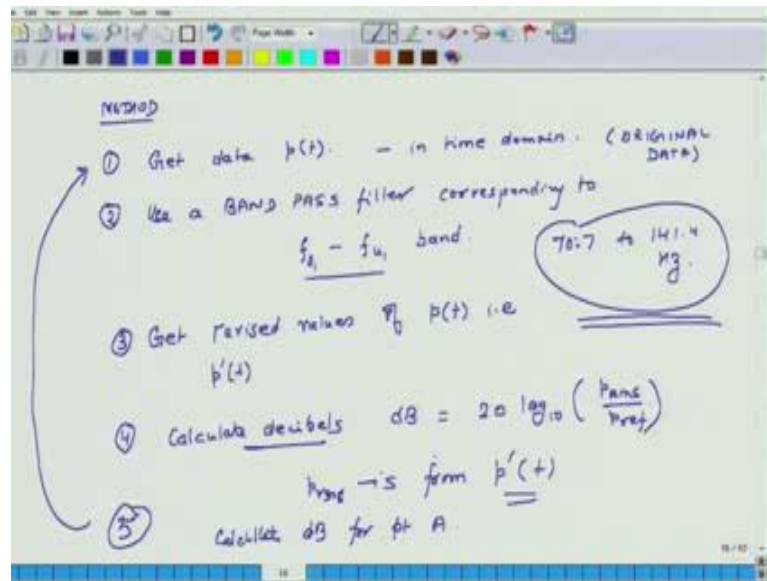 METHOD
① Get data p(t). - in time domain. (ORIGINAL DATA)
② Use a BAND PASS filter corresponding to
fl₁ - fu₁ band.
70.7 to 141.4 Hz.
③ Get revised values of p(t) i.e
p'(t)
④ Calculate decibels dB = 20 log₁₀ (Prms/Pref)
Prms → is from p'(t)
⑤ Calculate dB for pt A.